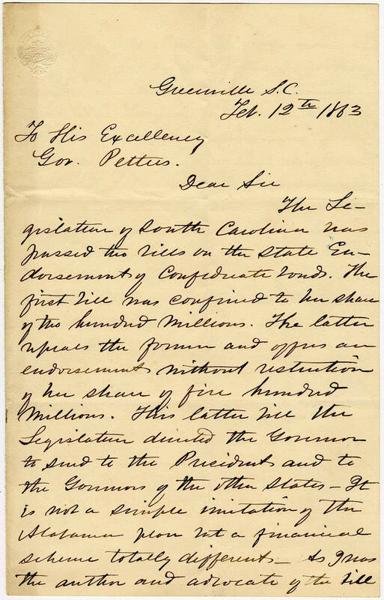 Greenville S.C.
Feb. 12th 1863
To His Excellency
Gov. Pettus.
Dear Sir
The Le-
gislature of South Carolina has
passed two bills on the State En-
dorsement of Confederate bonds. The
first bill was confined to her share
of two hundred Millions. The latter
repeals the former and offers an
endorsement without restriction
of her share of five hundred
Millions. This latter bill the
Legislature directed the Governor
to send to the President and to
the Governors of the other States — It
is not a simple imitation of the
Alabama plan but a financial
scheme totally different — As I was
the author and advocate of the bill